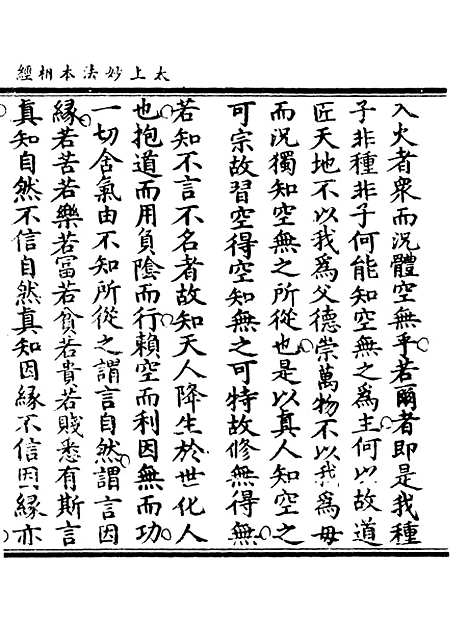 太上妙法本相經
入火者衆而況體空無乎若爾者即是我種
子非種非子何能知空無之爲主何以故道
匠天地不以我爲父德崇萬物不以我爲母
而況獨知空無之所從也是以真人知空之
可宗故習空得空知無之可特故修無得無
若知不言不名者故知天人降生於世化人
也抱道而用負陰而行賴空而利因無而功
一切含氣由不知所從之謂言自然謂言因
緣若苦若樂若冨若貧若貴若賤悉有斯言
真知自然不信自然真知因緣不信因緣亦